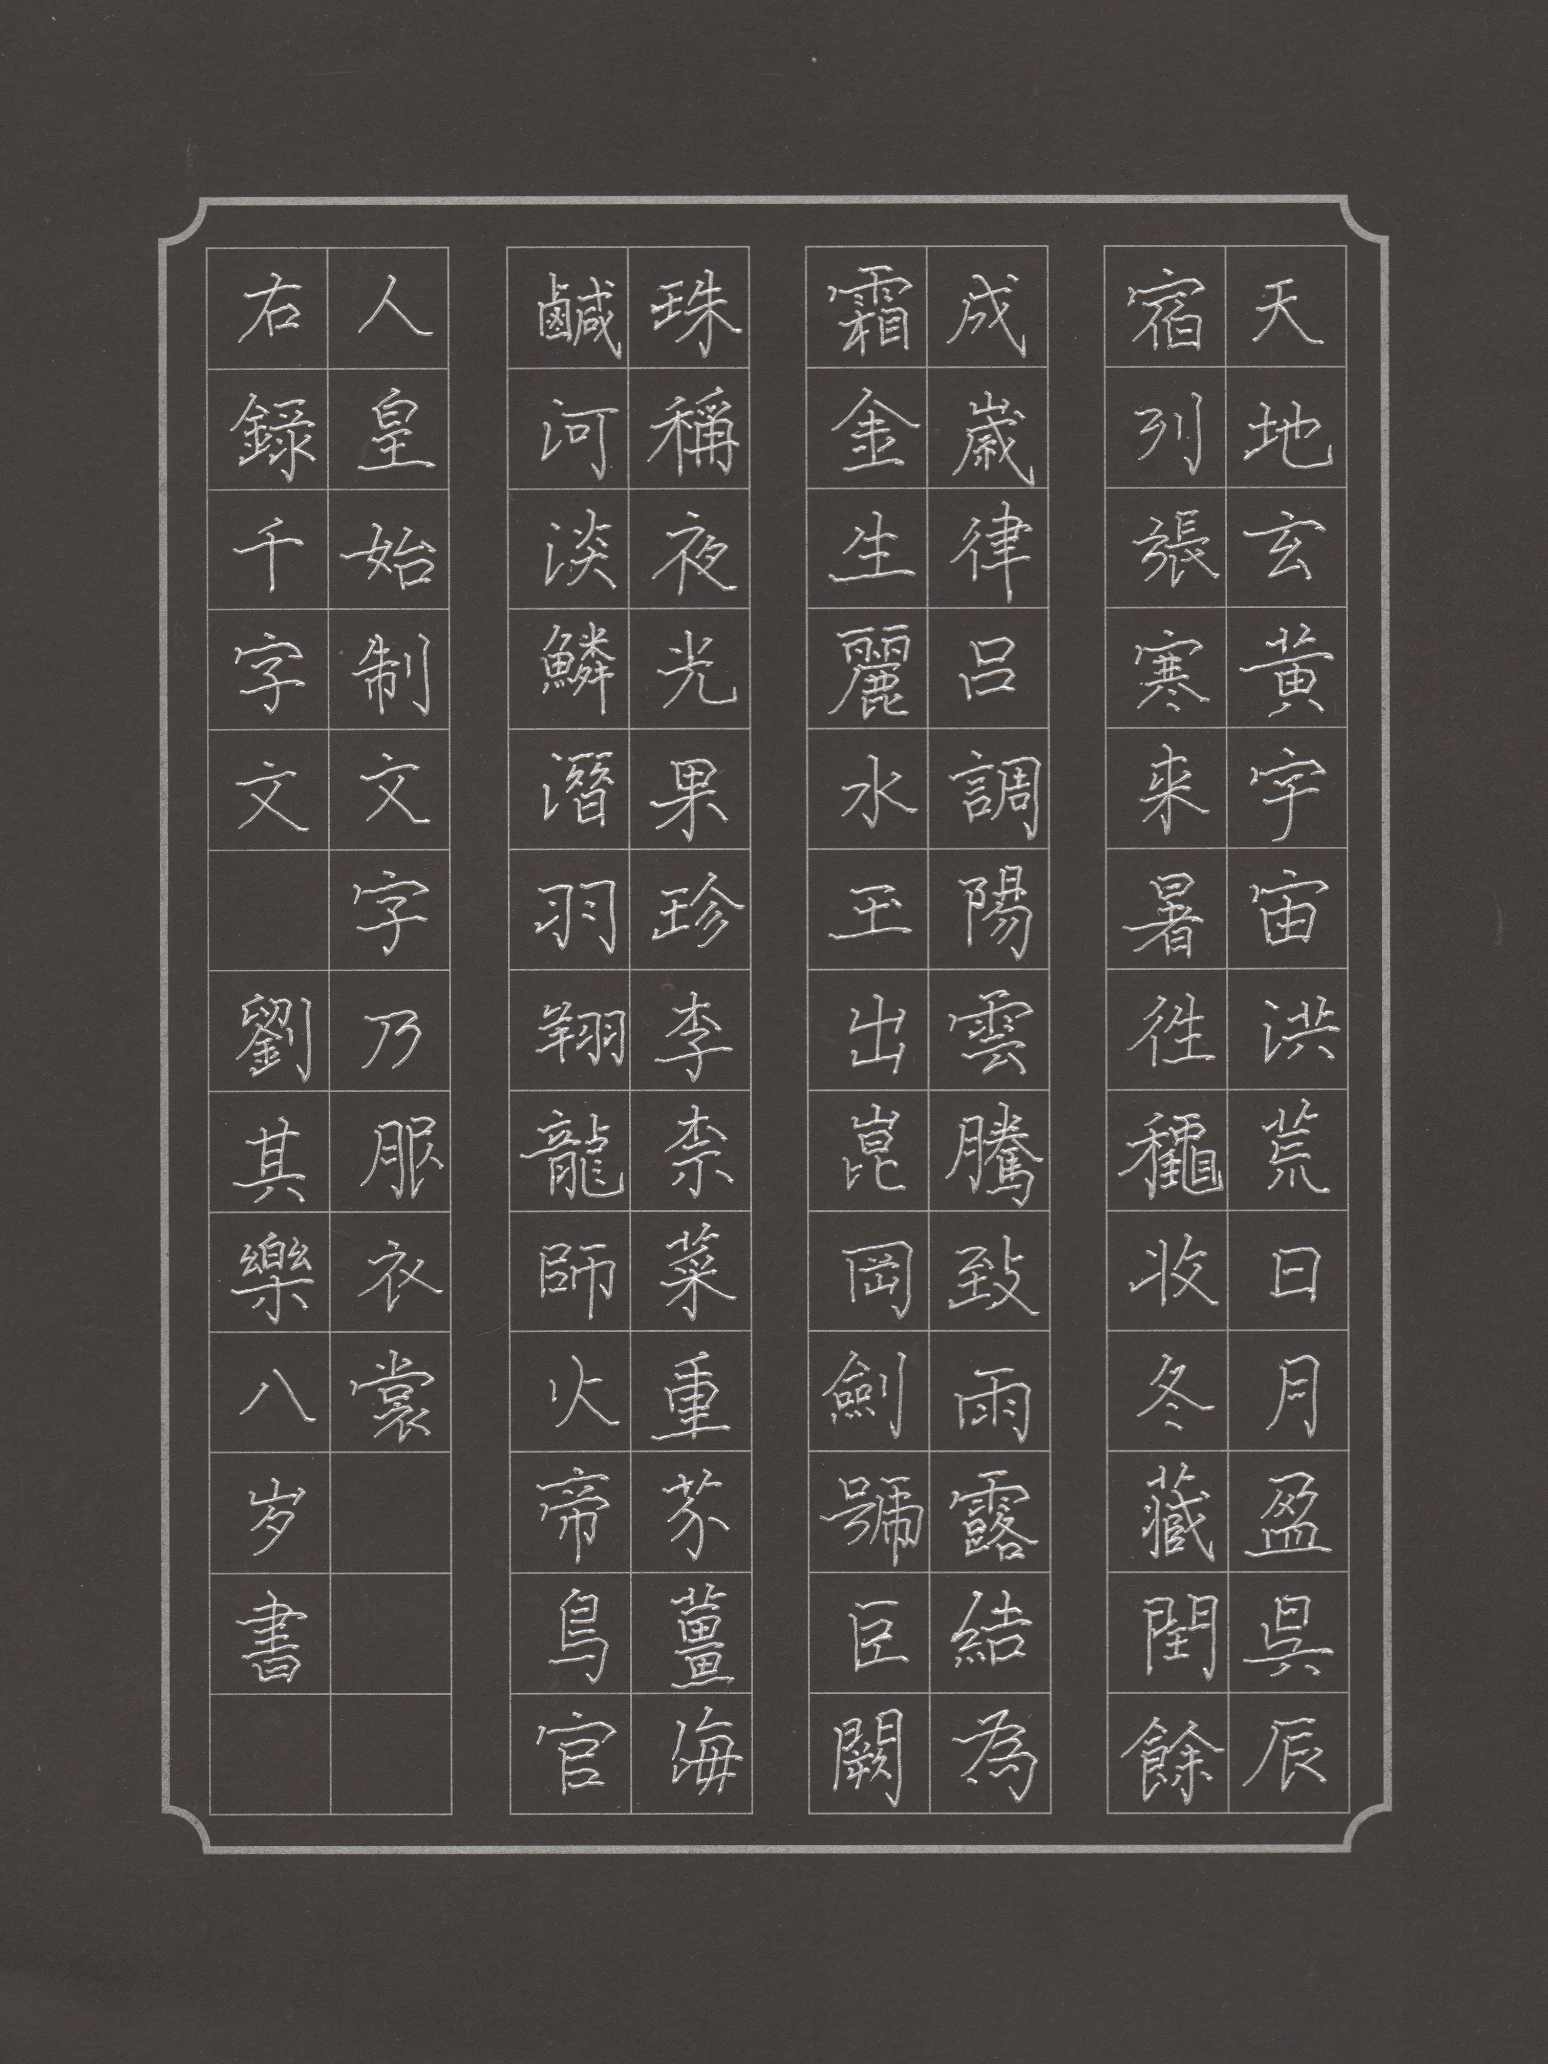 天地玄黃宇宙洪荒日月盈昃辰
宿列張寒来暑往龝收冬藏閏餘
成歲律呂調陽雲騰致雨露結為
霜金生麗水玉出崑岡劍號巨闕
珠稱夜光果珍李柰菜重芥薑海
鹹河淡鱗潛羽翔龍師火帝鳥官
人皇始制文字乃服衣裳
右錄千字文 劉其樂八岁書